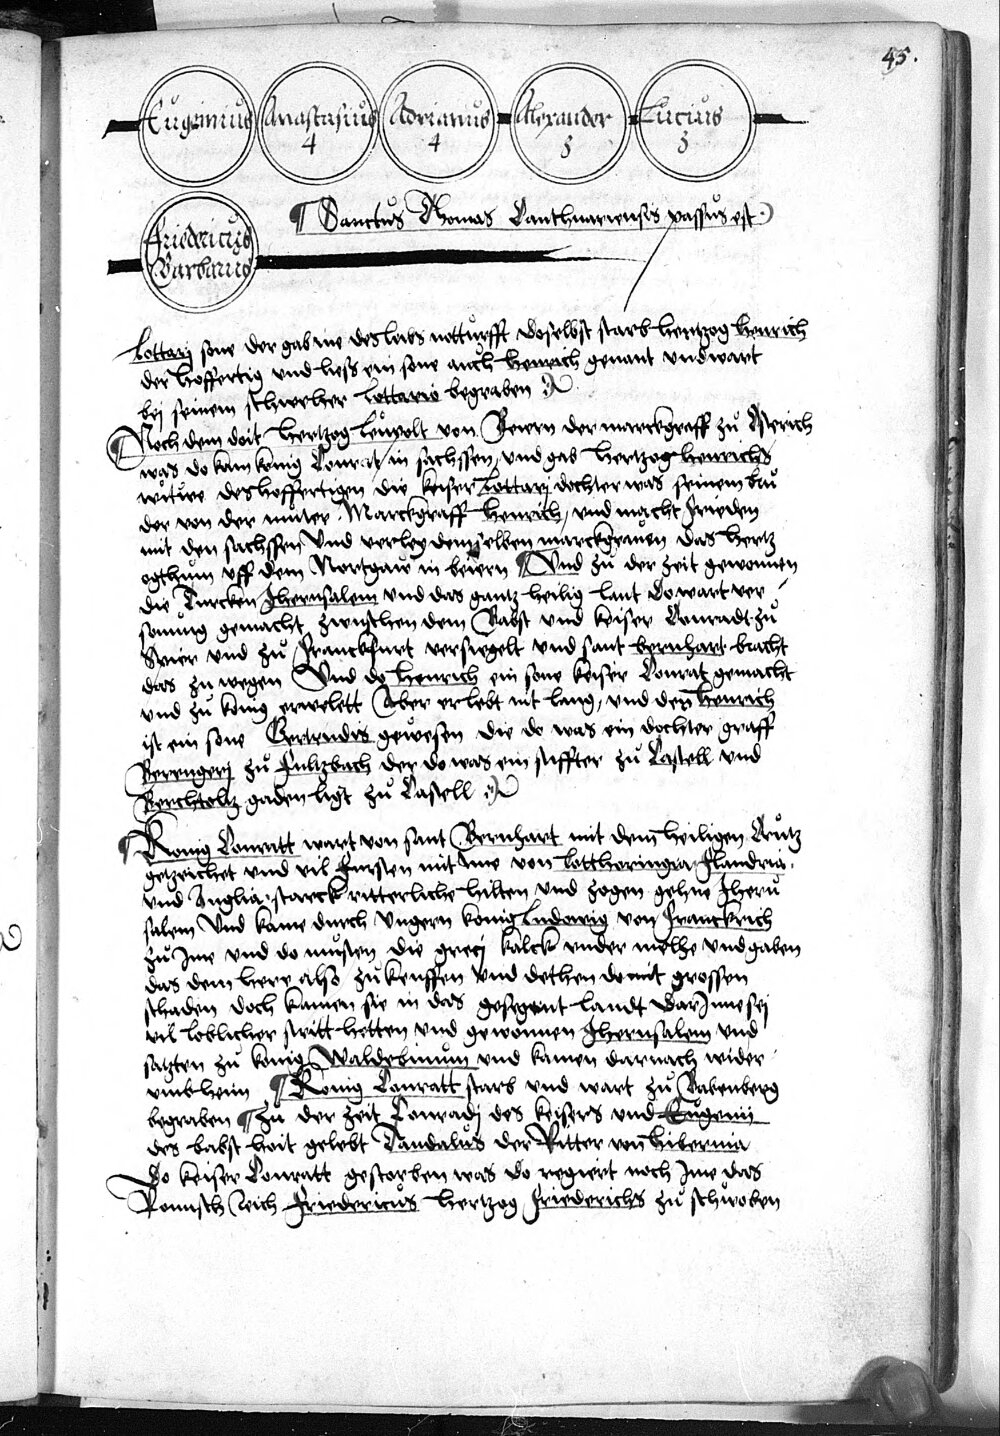 45.
Eugenius Anastasius 4 Adrianus 4 Alexander 3 Lucius 3
¶ Sanctus Thomas Canthuariensis passus est
Friedericus Barbarus
Lottarj sone der gab ine des leibs notturfft doselbst starb hertzog Henrich
der hoffertig und liess ein sone auch Henrich genant und wart
bej seinem schweher Lottario begraben
¶ Noch dem doit hertzog Leupolt von Beiern der marckgraff zu Osterich
was do kam konig Conrat in sachssen und gab hertzog Henrichs
witwe des hoffertigen die keiser Lottarj dochter was seinem bru
der von der muter Marckgraff Henrich, und macht frieden
mit den sachssen Und verley demselben marckgraven das hertz
ogthum uff dem Nortgaw in beiern ¶ Und zu der zeit gewonnen
die Turcken Jherusalem und das gantz heilig lant Do wart ver
sonung gemacht zwischen dem Babst und keiser Conradt zu
Speier und zu Franckfurt versiegelt und sant bernhart bracht
das zu wegen Und do Henrich ein sone keiser Conrat gemacht
und zu konig erwelett Aber er lebt nit lang, und den Henrich
ist ein sone Gertrudis gewesen die do was ein dochter graff
Berengerj zu Sultzbach der do was ein stiffter zu Castell und
Berchtoltz gaden ligt zu Castell
¶ Konig Conratt wart von sant Bernhart mit dem heiligen Crutz
getzeichet und vil fursten mit Ime von Lotthoringia Flandria
und Anglia starck ritterliche hilten und zogen gehne Jheru
salem Und kame durch Ungern konig Ludowig von Franckrich
zu Ime und do musten die grecj kalck under melhe und gaben
das dem here also zu keuffen und dethen domit grossen
schaden doch kamen sie in das gesegent landt dar Inne sej
vil loblicher stritt hetten und gewonnen Jherusalem und
satzten zu konig Waldebinum und kamen darnach wider
umb heim ¶ Konig Conratt starb und wart zu Babenberg
begraben ¶ Zu der zeit Conradj des keisers und Eugenij
des babst hait gelebt Tandalus der Ritter von Hibernia
Do keiser Conratt gestorben was do regiert noch Ime das
Romisch Reich Friedericus hertzog Friederichs zu schwoben